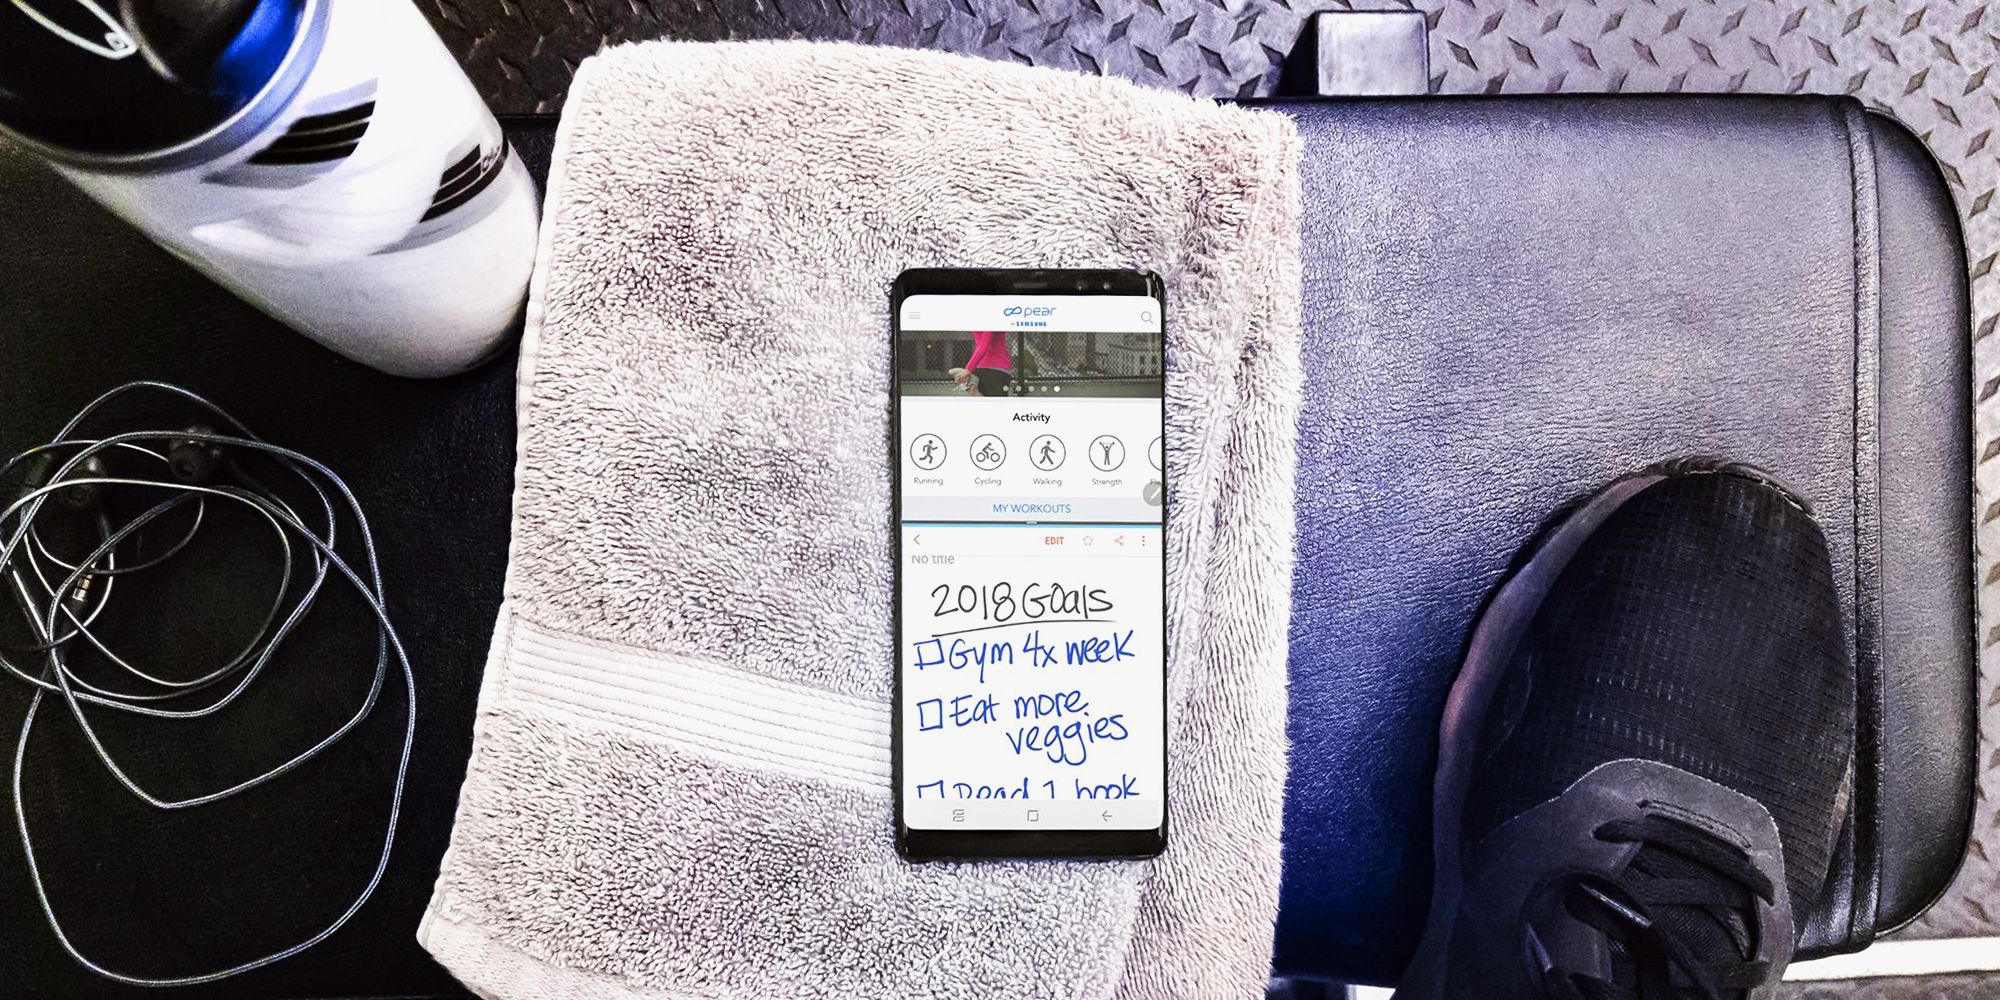 pear
by SAMSUNG
Activity
Running Cycling Walking Strength
MY WORKOUTS
EDIT
No title
2018 Goals
Gym 4x week
Eat more
veggies
Read 1 book